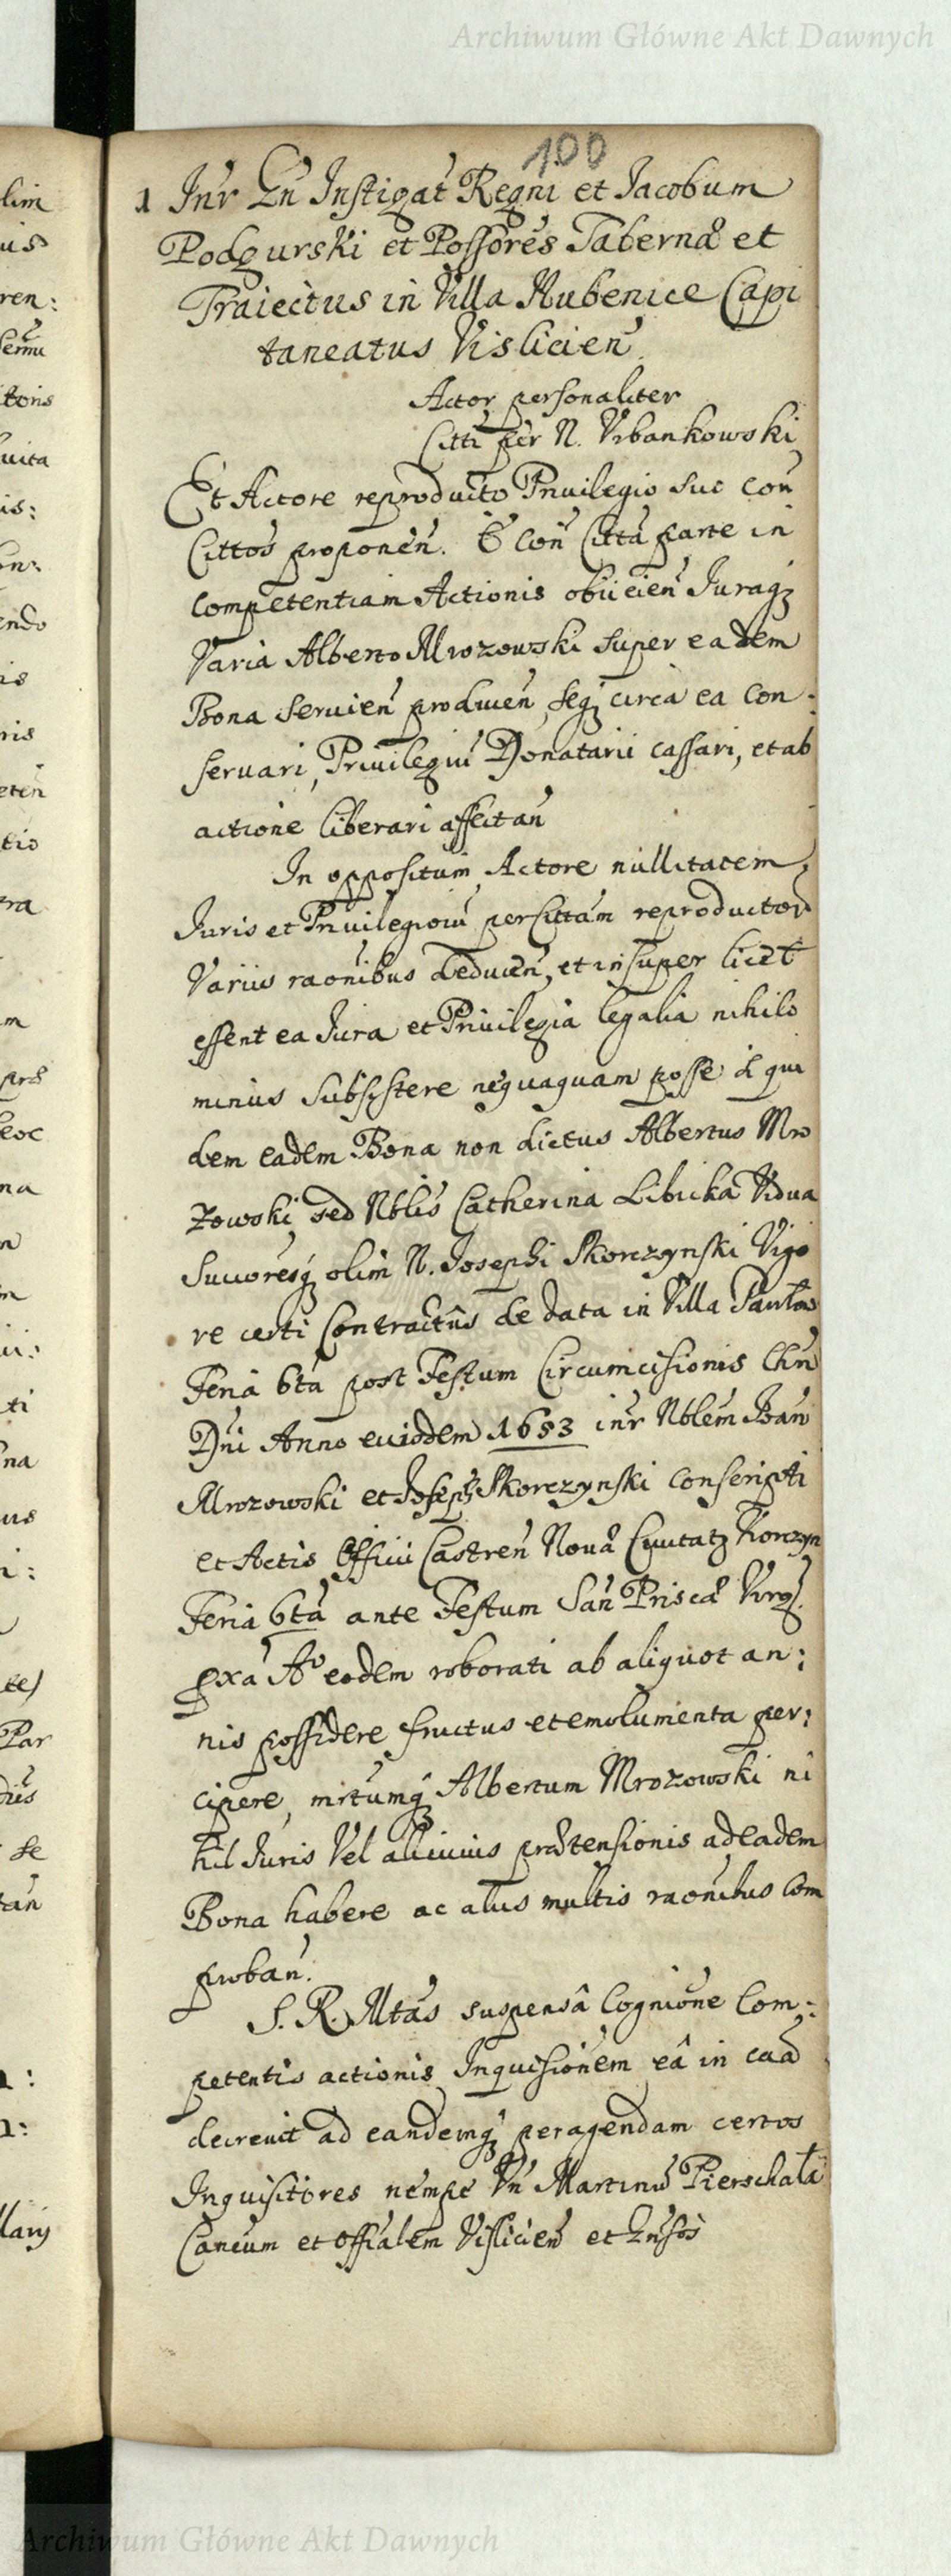 Archiwum Główne Akt Dawnych
100
1 Inr Gn Instigat Regni et Jacobum
Podgurski et Possores Tabernæ et
Traiectus in Villa Rubenice Capi
taneatus Vislicien.
Actor personaliter
Citti per N. Vrbankowski
Et Actore reproducto Priuilegio suo con
Cittos proponen. Et con Citta parte in
competentiam Actionis obiicien Juraq
Varia Alberto Mrozowski super eadem
Bona seruien producen, seq circa ea con:
seruari, Priuilegiu Donatarii cassari, et ab
actione liberari affectan
In oppositum Actore nullitatem
Juris et Priuilegioru per Cittam reproductor
Variis raonibus deducen, et insuper licet
essent ea Jura et Priuilegia legalia nihilo
minus subsistere nequaquam posse qui
dem eadem Bona non dictus Albertus Mro
zowski sed Nblis Catherina Libicka Vidua
Succoresq olim N. Josephi Skorczynski Vigo
re certi Contractus de data in Villa
Feria 6ta post Festum Circumcisionis Chri
Dni Anno eiusdem 1653 inr Nblem Joan
Mrozowski et Joseph Skorczynski conscripti
et Actis Officii Castren Nouæ Ciuitatq Korczyn
Feria 6ta ante Festum San Priscæ Virg.
pxa Ao eodem roborati ab aliquot an:
nis possidere fructus et emolumenta per:
cipere, Albertum Mrozowski ni
hil Juris Vel alicuius prætensionis ad eadem
Bona habere ac aliis multis raonibus com
proban.
S. R. Mtas suspensâ Cognione Com:
petentis actionis Inquisionem eâ in caâ
decreuit ad eandemq peragendam certos
Inquisitores nempe Vn Martinu Pierschała
Caneum et Offialem Vislicien et Gnsos
Archiwum Główne Akt Dawnych